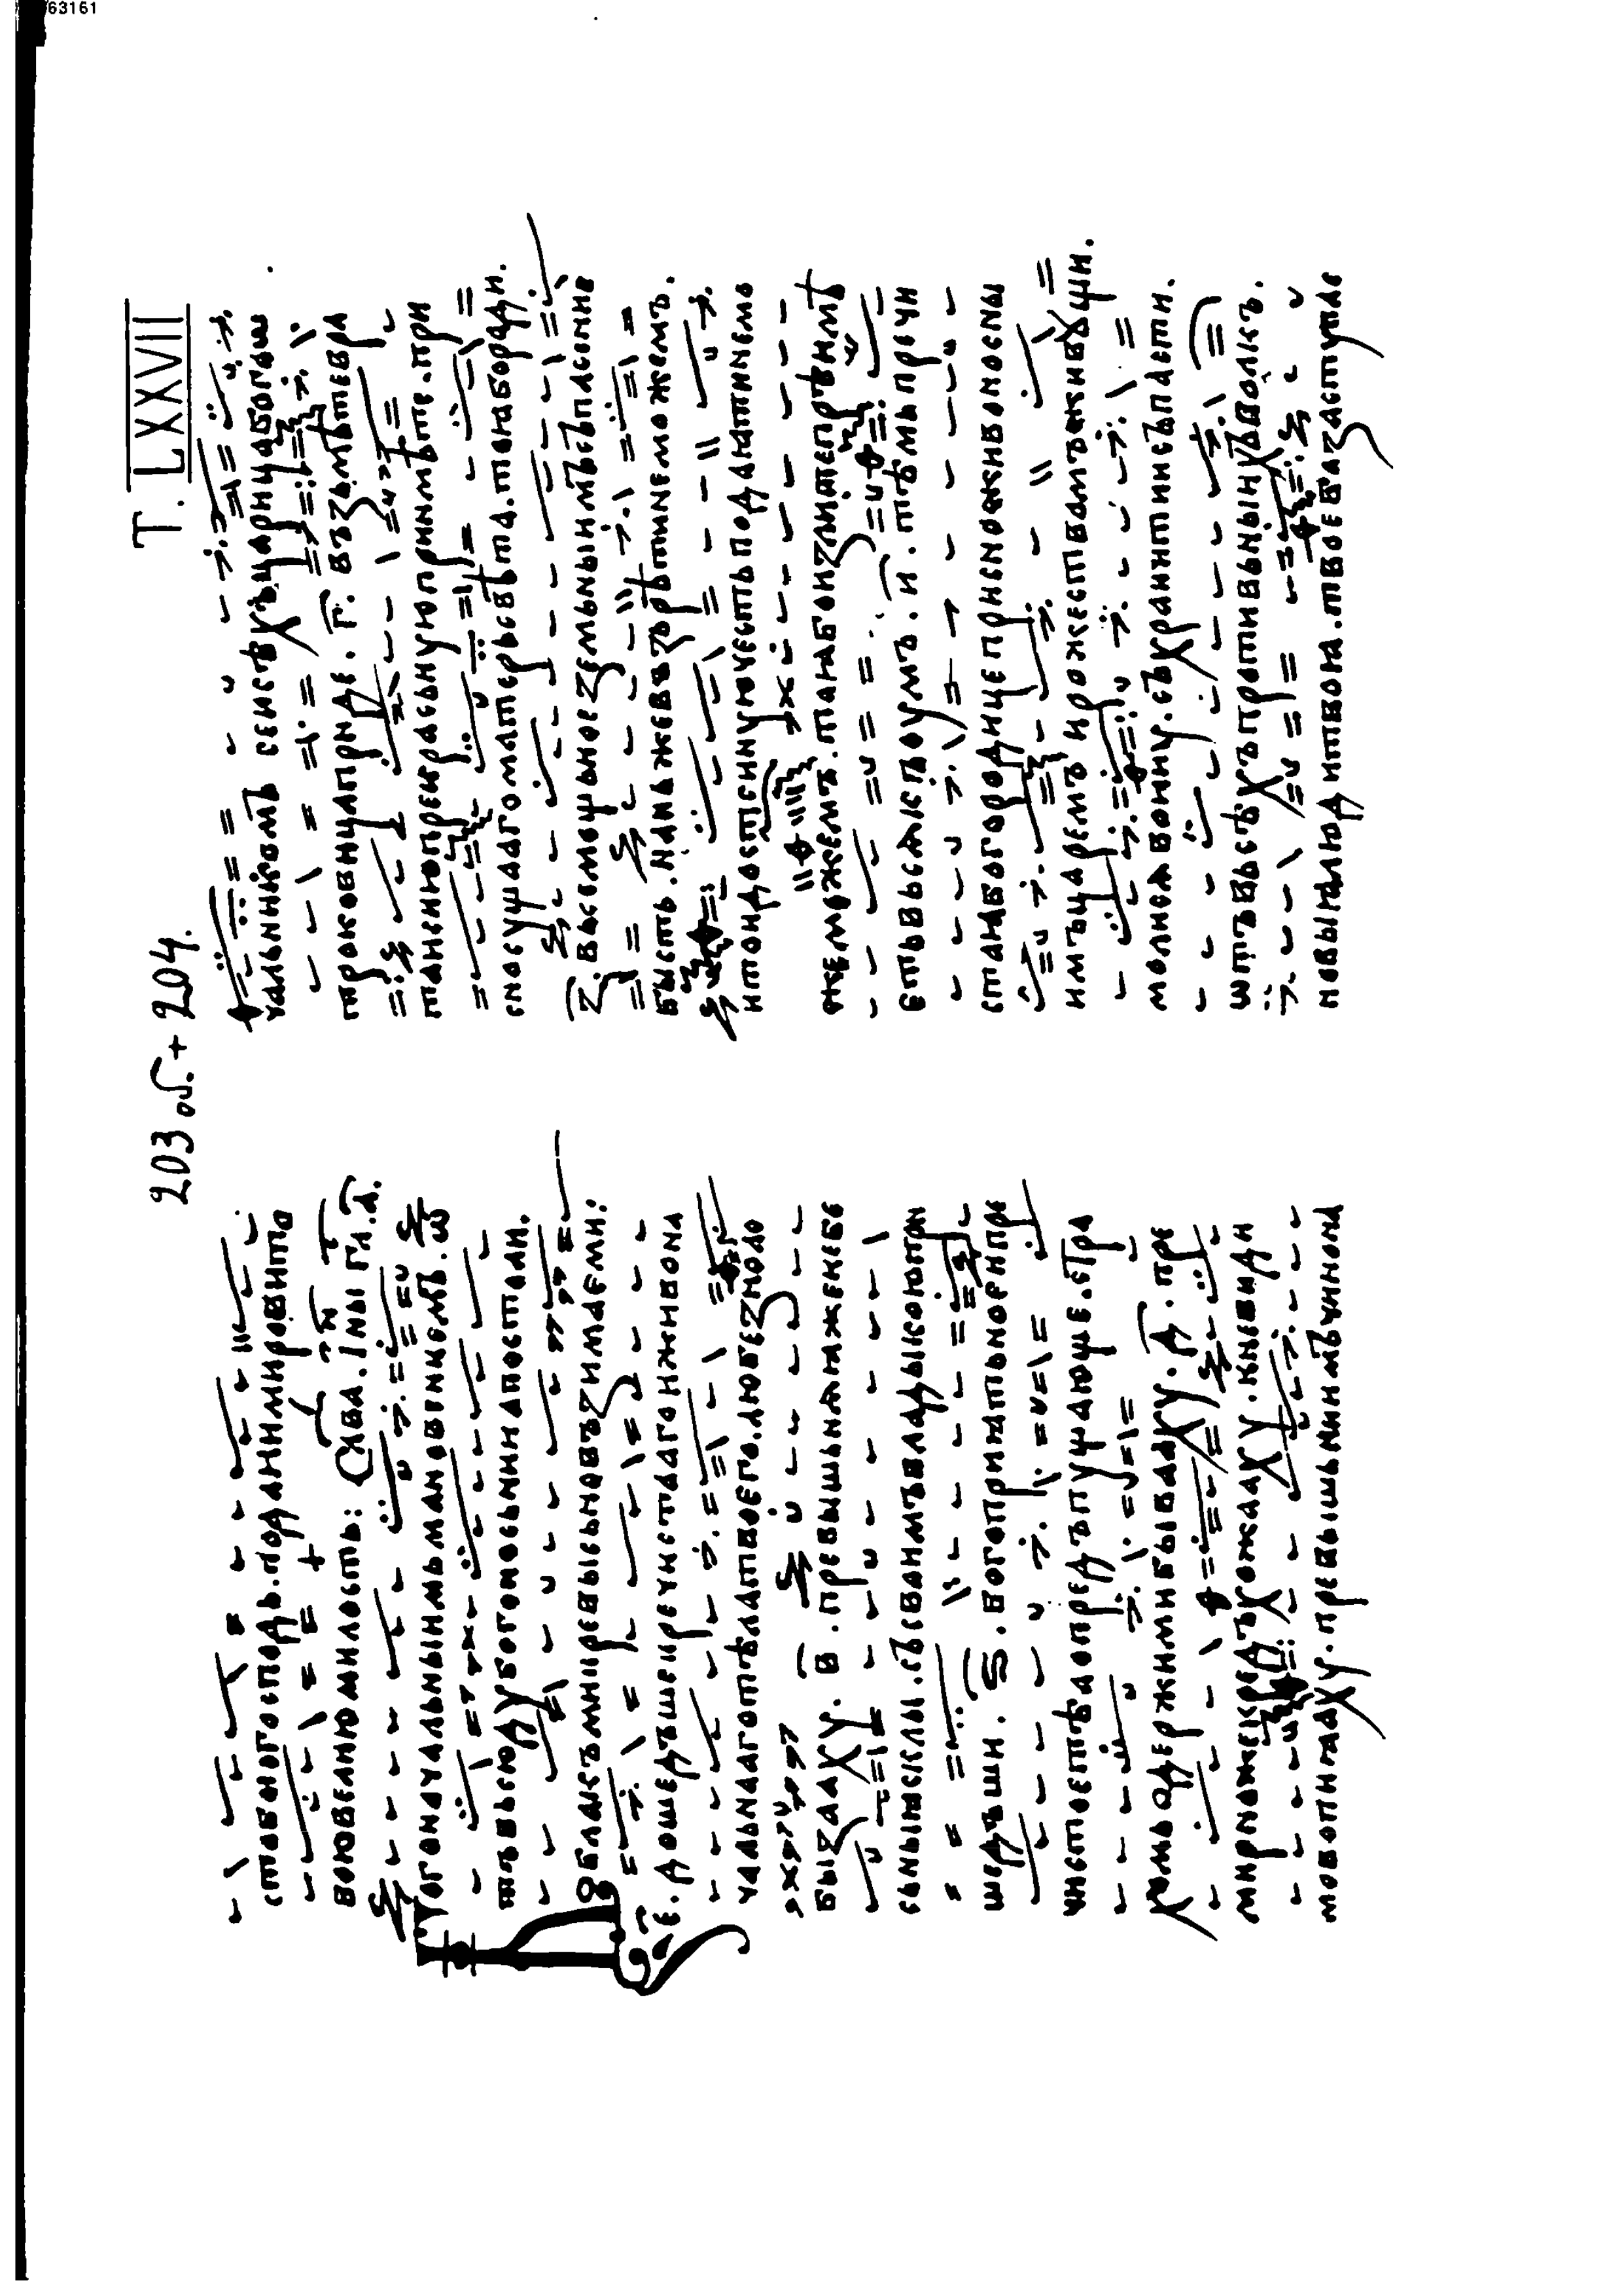 63161
T. LXXVII
203 об. + 204.
ставѣ ногосподь. поданⷩ мировито
воювелию милость: Схва. Іны гл.д҃.
огоначальнымь мановениемъ. ѿ
тъвьсюду богоносьнии апостоли.
облакъмиревысьновъзимаеми:
е҃. дошедъше пречистааго и живона
чальнааго тѣла твоего. любезноло
бызааху. в҃. превышьняꙗ же небе
сьныꙗ силы. съ своимъ владыкою при
шедъши. ѕ҃. богоприꙗтьное и пре
чистое тѣло предъпущающе. стра
хомь одьржими бывааху. д҃. пре
мирно же предъхожааху. и невиди
мо вопиꙗаху. превышьниимъ чинона
чальникомъ се и вьсѣхъ царица богаꙗ
троковица приде. г҃. възьмѣте вра
та и сию премирьную приимѣте. при
сносущааго матерь свѣта. тою бо ради.
з҃. вьсемощьное земьныимъ съпасение
бысть. на нь же възирати не можемъ.
и тои достоиную честь подаꙗти не мо
жемъ. та бо изли те прѣимѣ
еть вьсякъ умъ. и҃. тѣмь пречи
стаꙗ богородице присно живоносны
имъ царемь и рожествъмь живущи.
молисѧ воину. съхранити и съпасти.
ѿтъ вьсѣхъ противьныихъ вълкъ.
новыꙗ люди твоꙗ. твое бо заступле